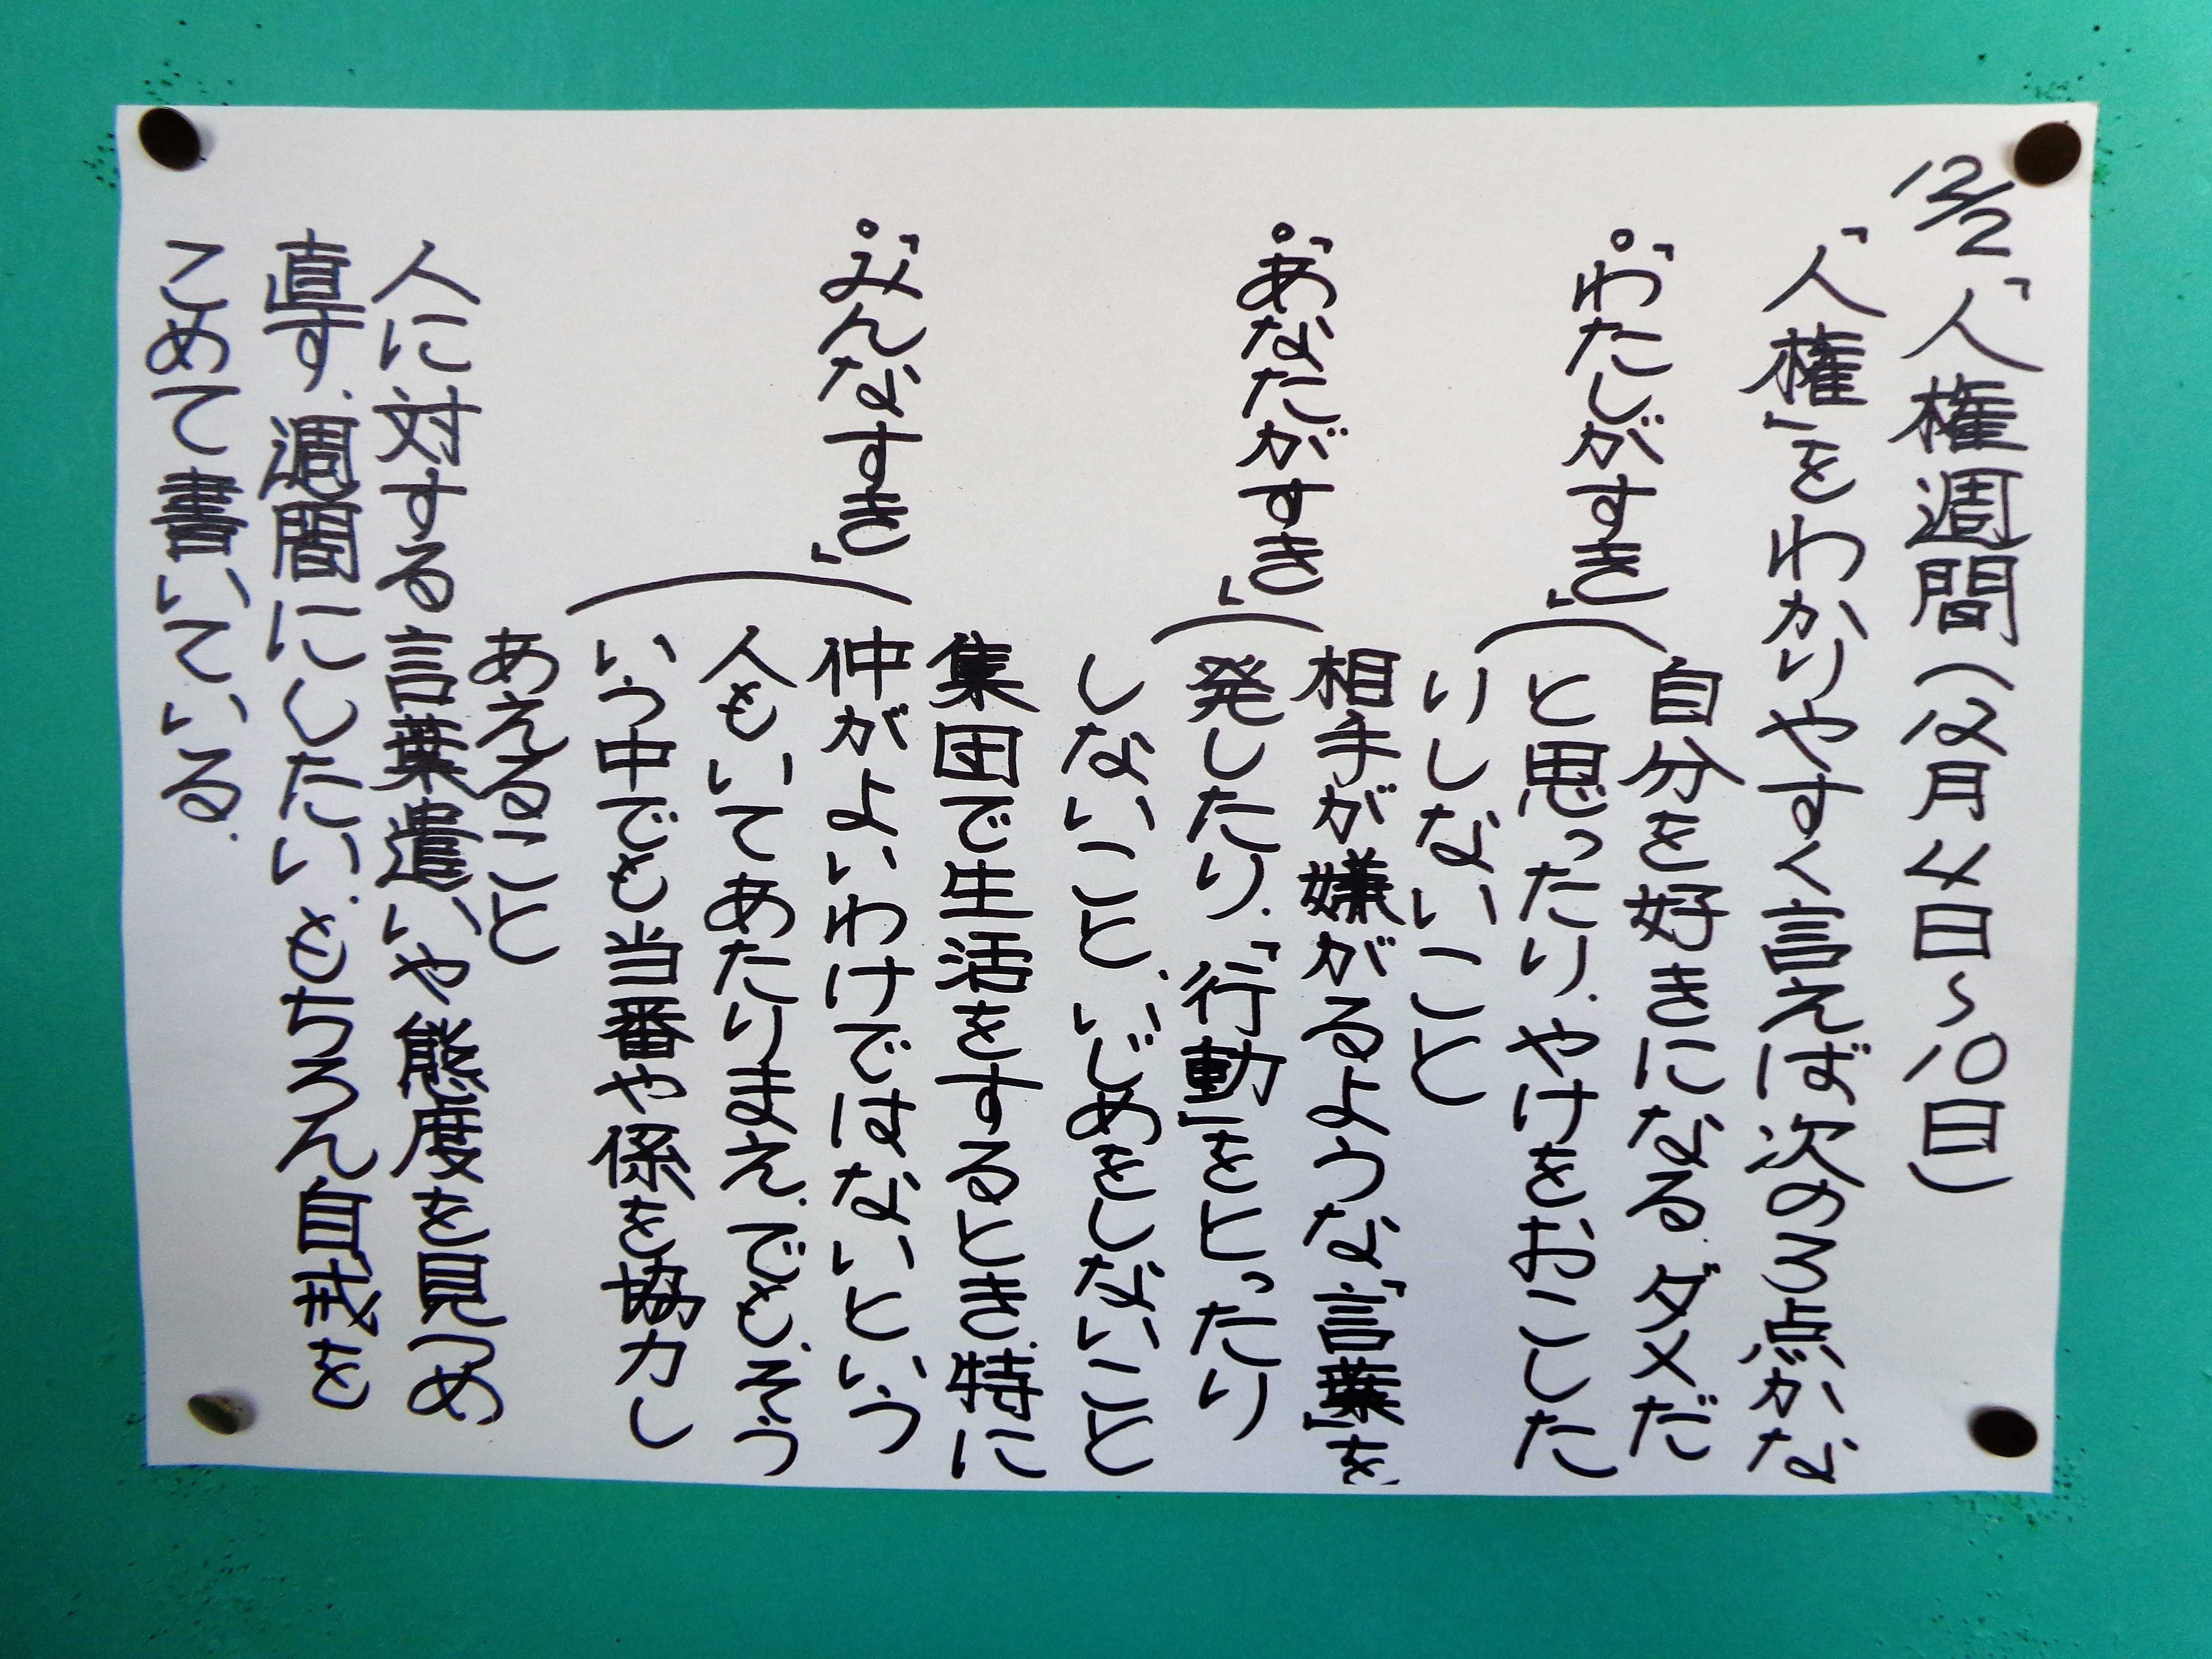 12/2「人権週間(12月4日~10日)
「人権」をわかりやすく言えば次の3点かな
。「わたしがすき」(自分を好きになる.ダメだ
と思ったり.やけをおこした
りしないこと
。「あなたがすき」(相手が嫌がるような「言葉」を
発したり.「行動」をとったり
しないこと、いじめをしないこと
。「みんなすき」(集団で生活をするとき.特に
仲がよいわけではないという
人もいてあたりまえ.でも、そう
いう中でも当番や係を協力し
あえること
人に対する言葉遣いや態度を見つめ
直す.週間にしたい.もちろん自戒を
こめて書いている.